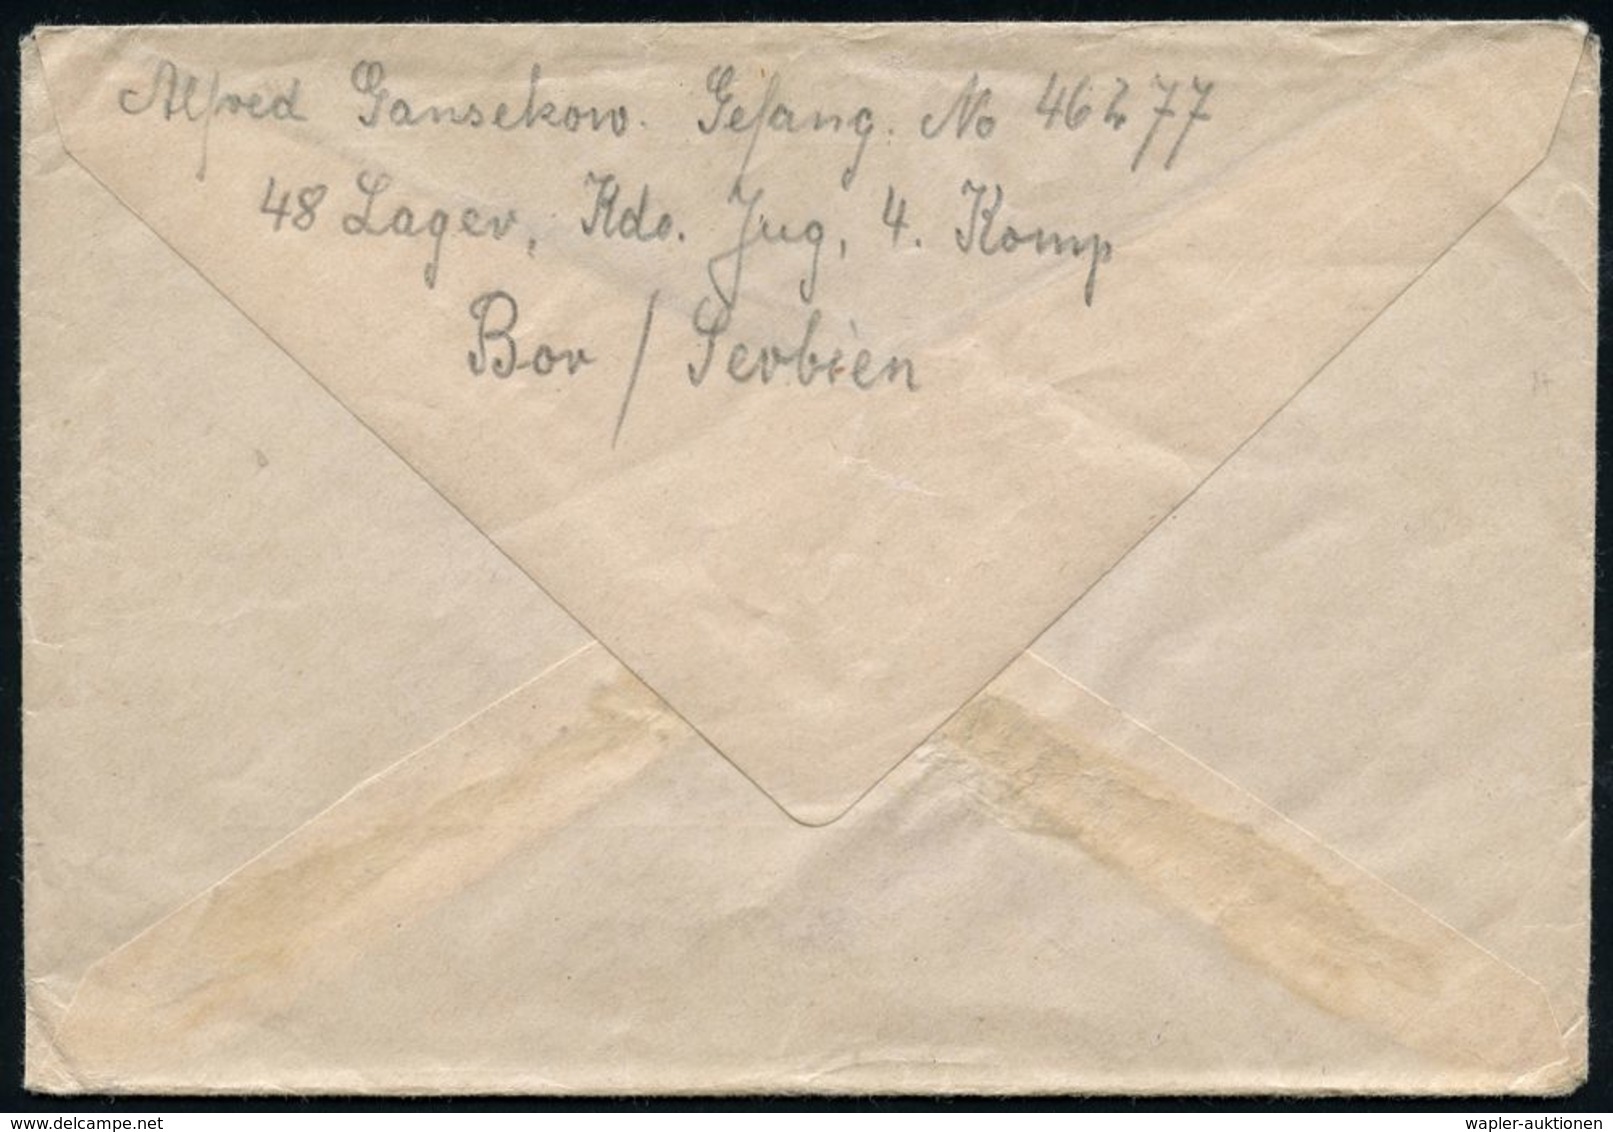 Alfred Gansekow. Gefang. No 46277
48 Lager, Kdo. Jug, 4. Komp
Bor / Serbien
wapler-auktionen